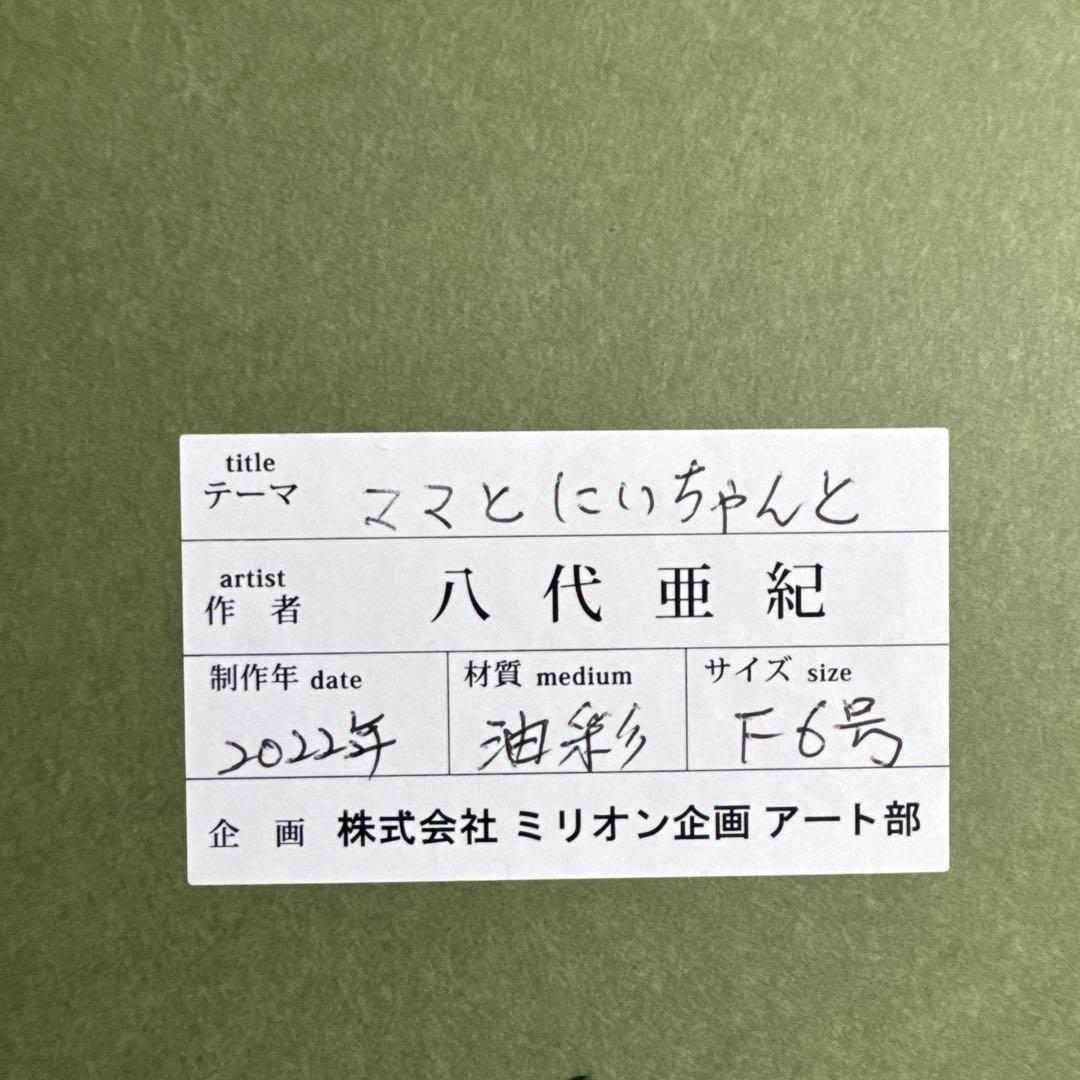 title
テーマ ママとにいちゃんと
artist
作者 八代亜紀
制作年 date 材質 medium サイズ size
2022年 油彩 F6号
企画 株式会社 ミリオン企画 アート部